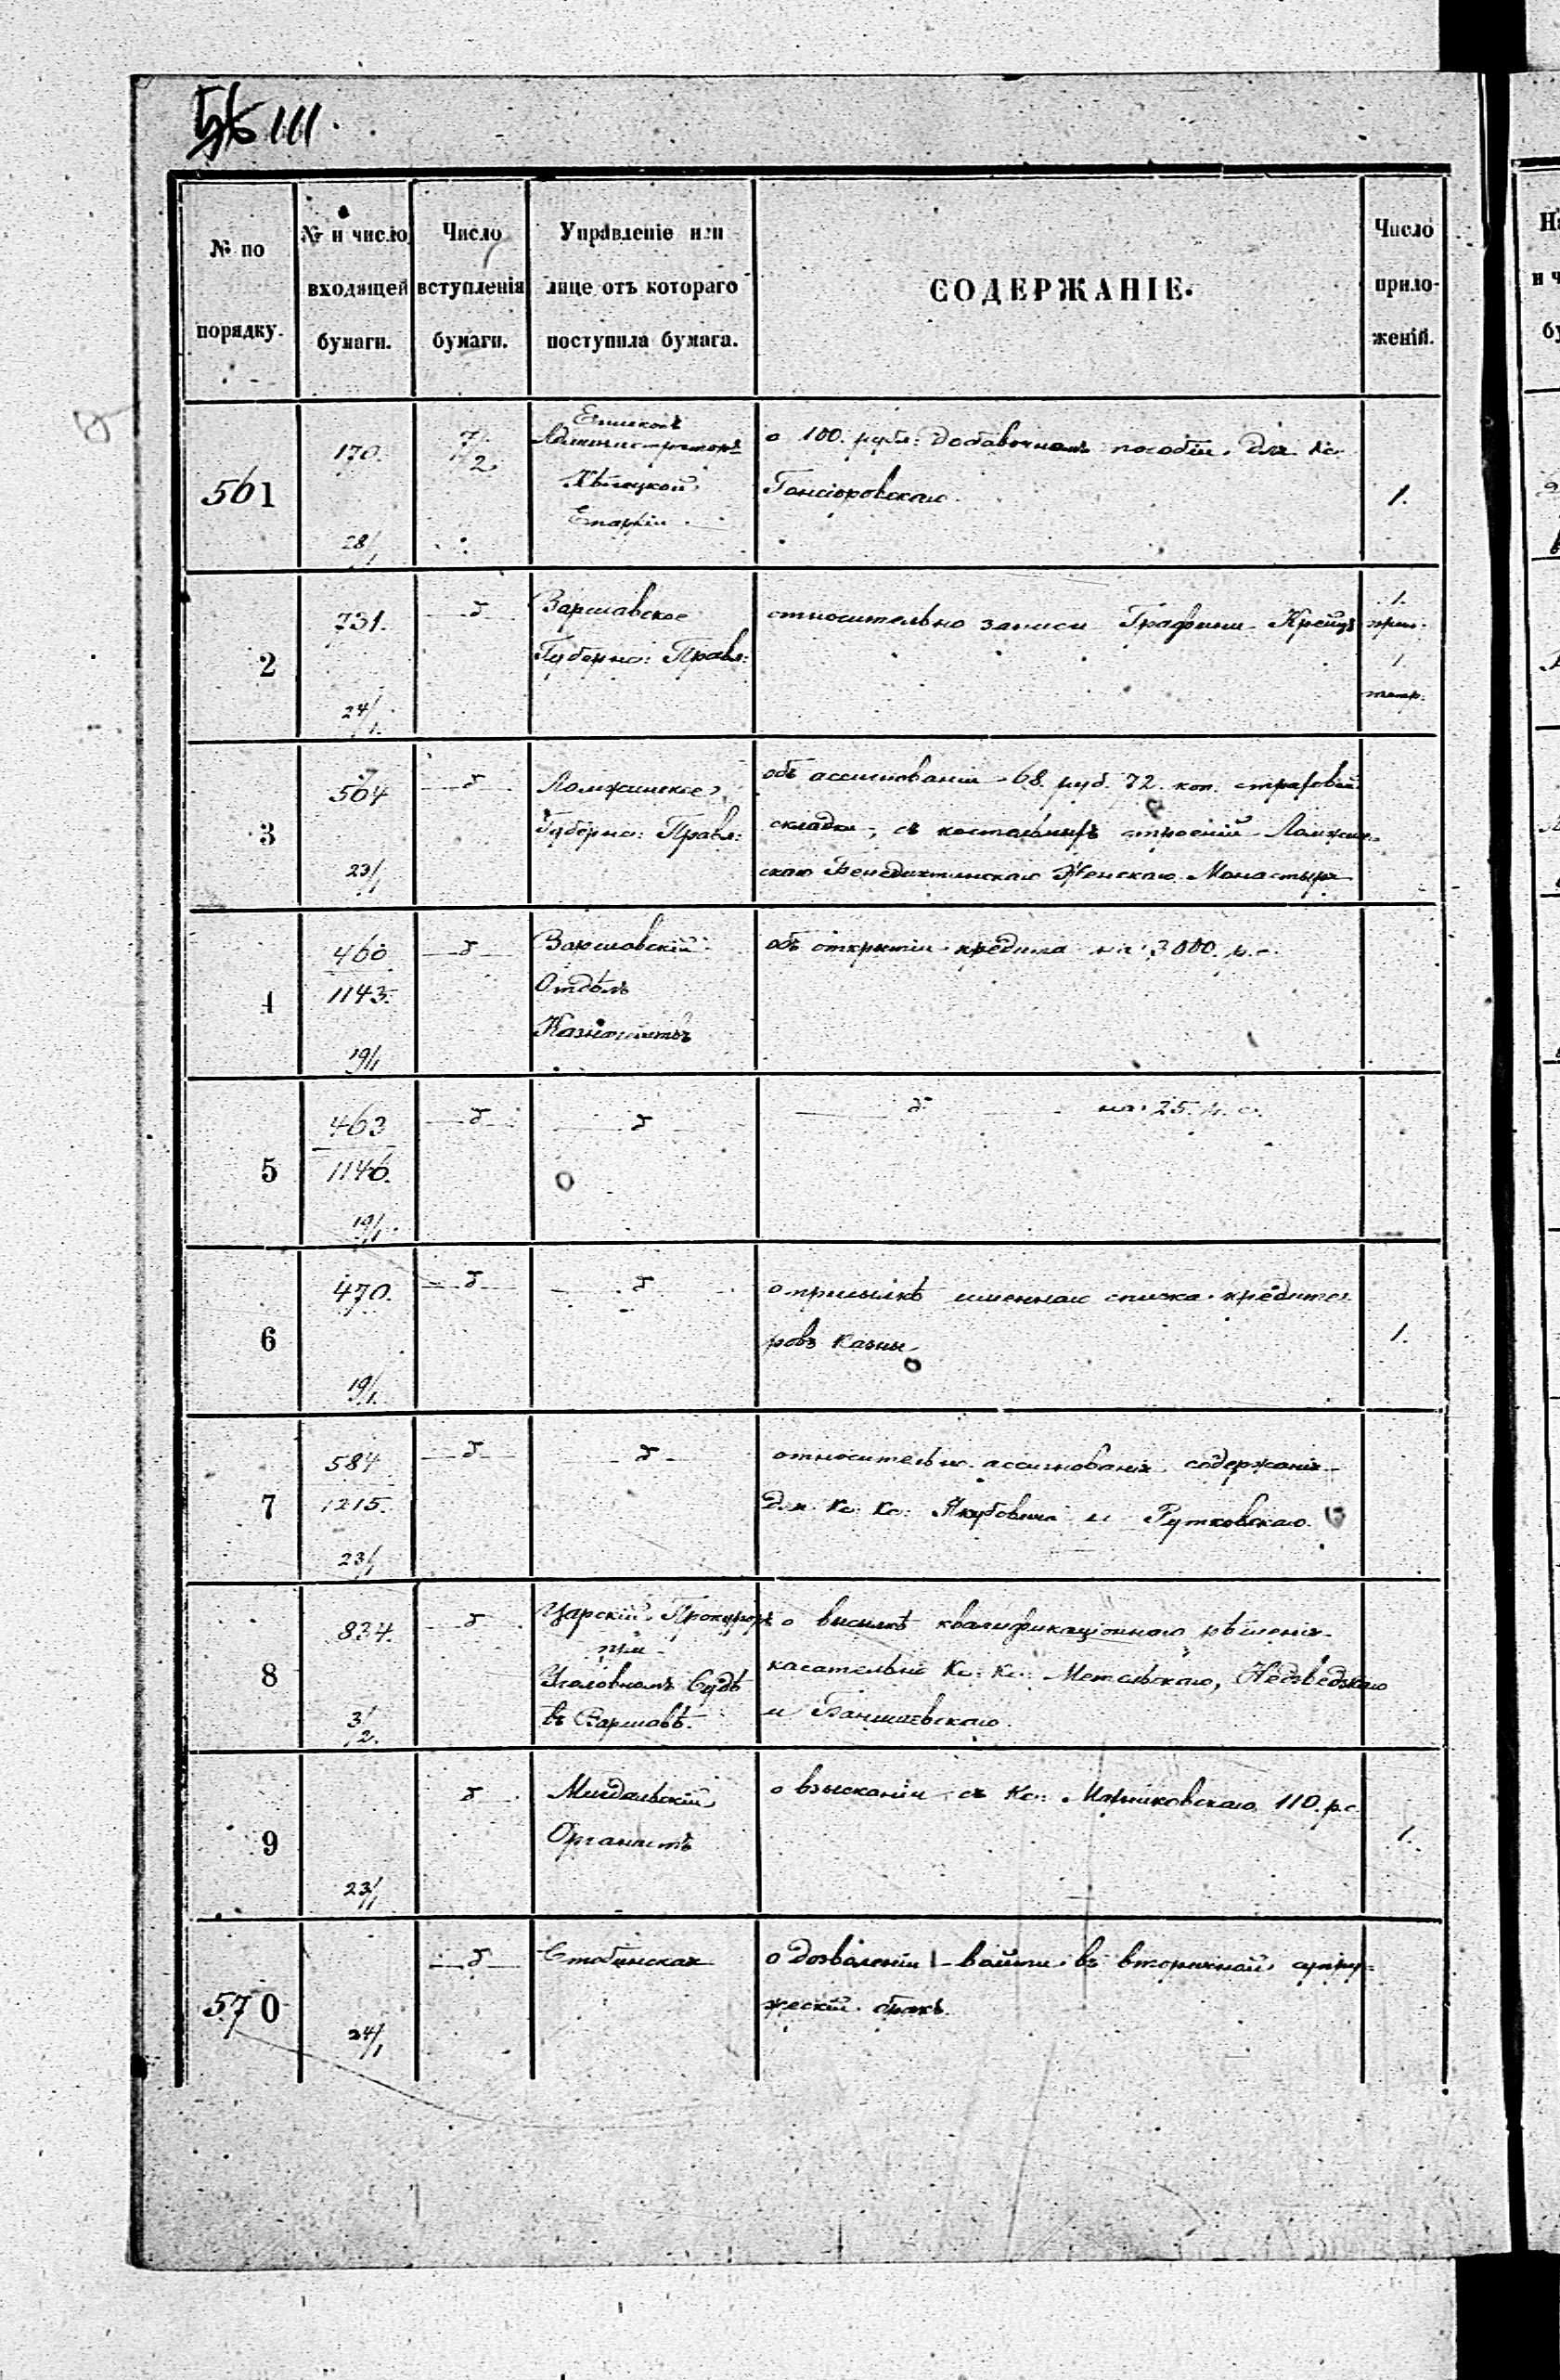 56 111.
№ по порядку.
№ и число входящей бумаги.
Число вступленія бумаги.
Управленіе или лице отъ котораго поступила бумага.
СОДЕРЖАНІЕ.
Число приложеній.
561
170.
28/1
7/2
Епископъ
Администраторъ
Епархіи
о 100. рубл: добавочномъ пособіи для Кс.
Гонсіоровскаго.
1.
2
731.
24/1.
δ
Варшавское
Губерно: Правл:
относительно записи Графини Крейцъ
1.
прил.
1.
3
564
23/1
δ
Ломжинское
Губерно: Правл:
объ ассигнованіи 68. руб. 72. коп. страховой
складки, съ костельныхъ строеній Ломжин-
скаго Бенедиктинскаго Женскаго Монастыря
4
460
1143.
19/1
δ
Варшавскій
Отдѣлъ
Казначействъ
объ открытіи кредита на 3000. р. с.
5
463
1146.
19/1.
δ
δ
δ на 25. р. с.
6
470.
19/1.
δ
δ
о присылкѣ именнаго списка кредито-
ровъ казны
1.
7
584
1215.
23/1
δ
δ
относительно ассигнованія содержанія
для Кс. Кс: Якубовича и Рутковскаго.
8
834.
3/2.
δ
Царскій Прокуроръ
при
Уголовномъ Судѣ
въ Варшавѣ.
о высылкѣ квалификаціоннаго рѣшенія
касательно Кс: Кс: Метельскаго, Недзведзкаго
и
9
23/1
δ
Мигдальскій
Органистъ
о взысканіи съ Кс: 110. р. с.
1.
570
24/1
δ
о дозволеніи войти въ вторичный супру-
жескій бракъ.